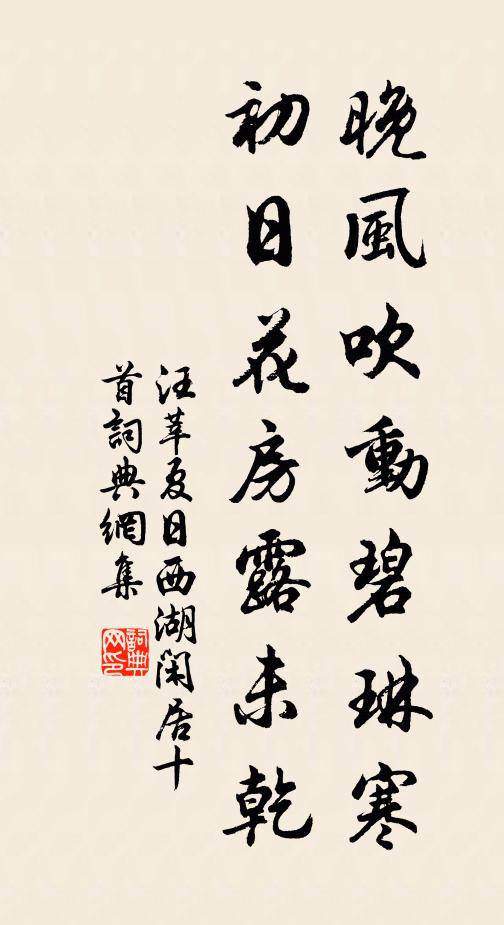 晚風吹動碧琳寒
初日花房露未乾
汪莘夏日西湖閑居十
首詞典網集
詞典網印